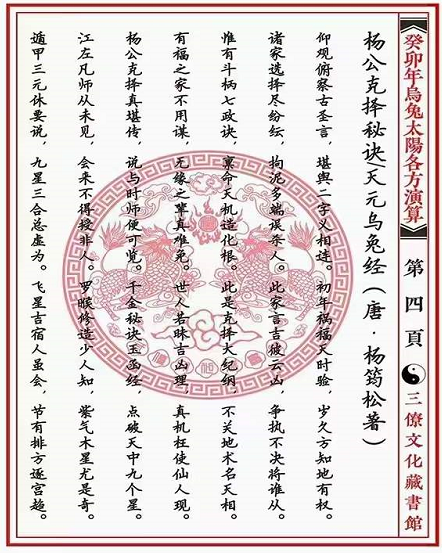 癸卯年烏兔太陽各方演算 第四頁 三僚文化藏書館
杨公克择秘诀《天元乌兔经》(唐·杨筠松著)
仰观俯察古圣言,堪舆二字义相连。初年祸福天时验,岁久方知地有权。
诸家选择尽纷纭,拘泥多端误杀人。此家言吉彼云凶,争执不决将谁从。
惟有斗柄七政诀,禀命天机造化根。此是克择天纪纲,不关地术名天相。
有福之家不用谋,无缘之辈真难免。世人若昧吉凶理,真机枉使仙人现。
杨公克择真堪传,说与时师便可览。千金秘诀玉函经,点破天中九个星。
江左凡师从未见,会来不得授非人。罗睺修造少人知,紫气木星尤是奇。
遁甲三元休要说,九星三合总虚为。飞星吉宿人虽会,节有排方逐宫趋。